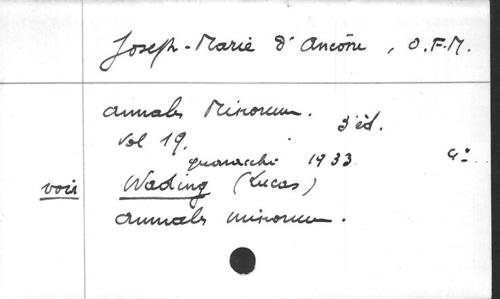 Joseph-Marie d'Ancône, O.F.M.
Annales Minorum.
3 éd.
Vol 19.
Quaracchi 1933 4°
voir Wading (Lucas)
Annales minorum.